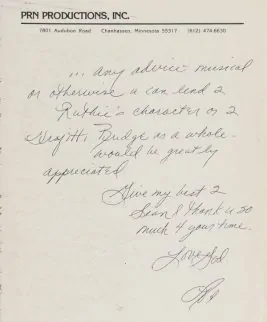 PRN PRODUCTIONS, INC.
7801 Audubon Road Chanhassen, Minnesota 55317 (612) 474-6630
... any advice musical
or otherwise u can lend 2
Ruthie's character or 2
Graffiti Bridge as a whole
would be greatly
appreciated
Give my best 2
Sean & thank u so
much 4 your time.
Love God